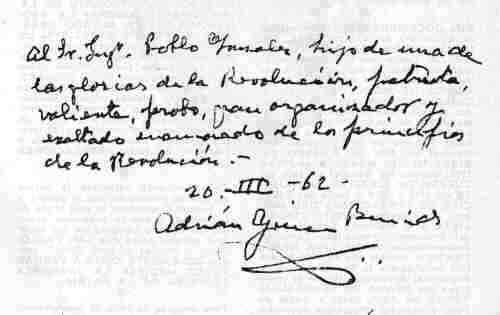 Al Sr. Ingº. Pablo Gonzales, hijo de una de
las glorias de la Revolución, patriota,
valiente, probo, gran organizador y
exaltado enamorado de los principios
de la Revolución.-
20.-III-62-
Adrián